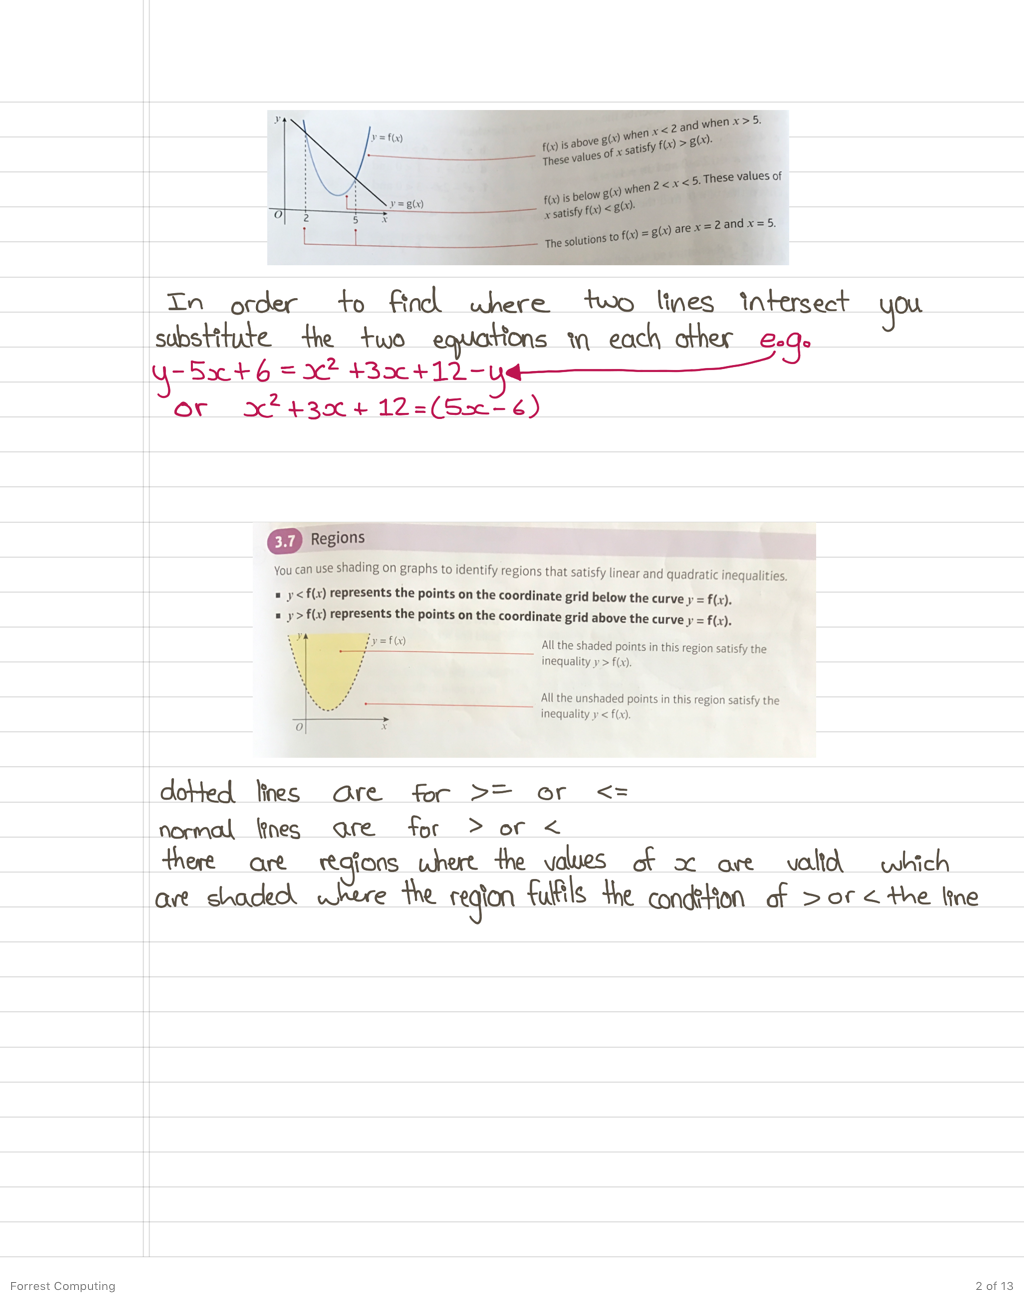 y
y = f(x)
f(x) is above g(x) when x < 2 and when x > 5.
These values of x satisfy f(x) > g(x).
f(x) is below g(x) when 2 < x < 5. These values of
x satisfy f(x) < g(x).
y = g(x)
O 2 5 x
The solutions to f(x) = g(x) are x = 2 and x = 5.
In order to find where two lines intersect you
substitute the two equations in each other e.g.
y-5x+6=x²+3x+12-y
or x²+3x+12=(5x-6)
3.7 Regions
You can use shading on graphs to identify regions that satisfy linear and quadratic inequalities.
▪ y < f(x) represents the points on the coordinate grid below the curve y = f(x).
▪ y > f(x) represents the points on the coordinate grid above the curve y = f(x).
y
y = f(x)
All the shaded points in this region satisfy the
inequality y > f(x).
All the unshaded points in this region satisfy the
inequality y < f(x).
O x
dotted lines are for >= or <=
normal lines are for > or <
there are regions where the values of x are valid which
are shaded where the region fulfils the condition of > or < the line
Forrest Computing
2 of 13